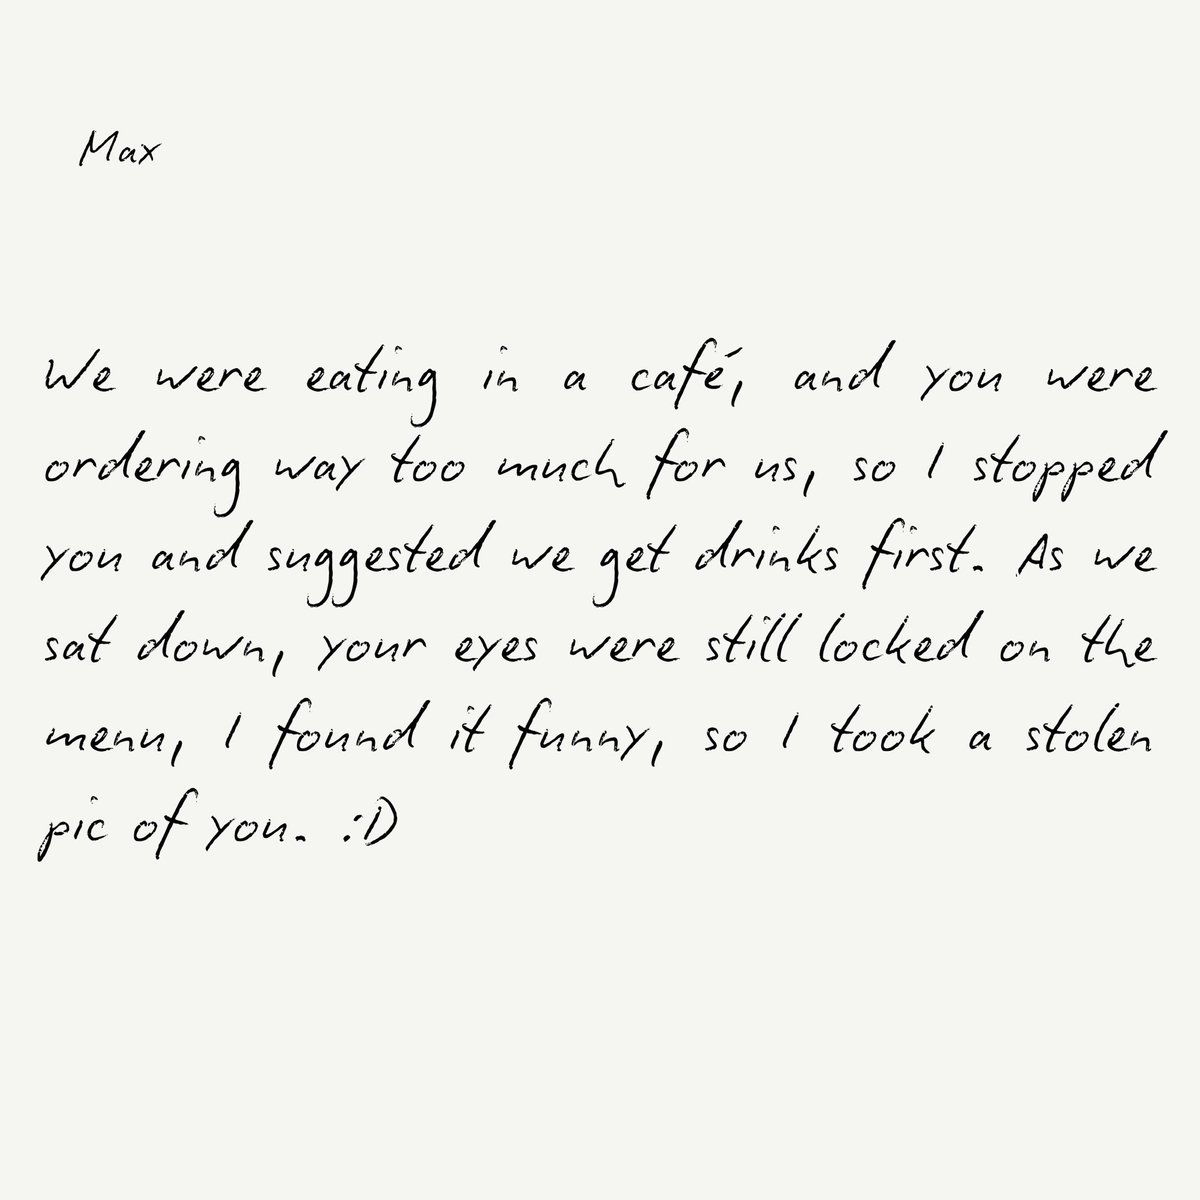 Max
We were eating in a café, and you were
ordering way too much for us, so I stopped
you and suggested we get drinks first. As we
sat down, your eyes were still locked on the
menu, I found it funny, so I took a stolen
pic of you. :D